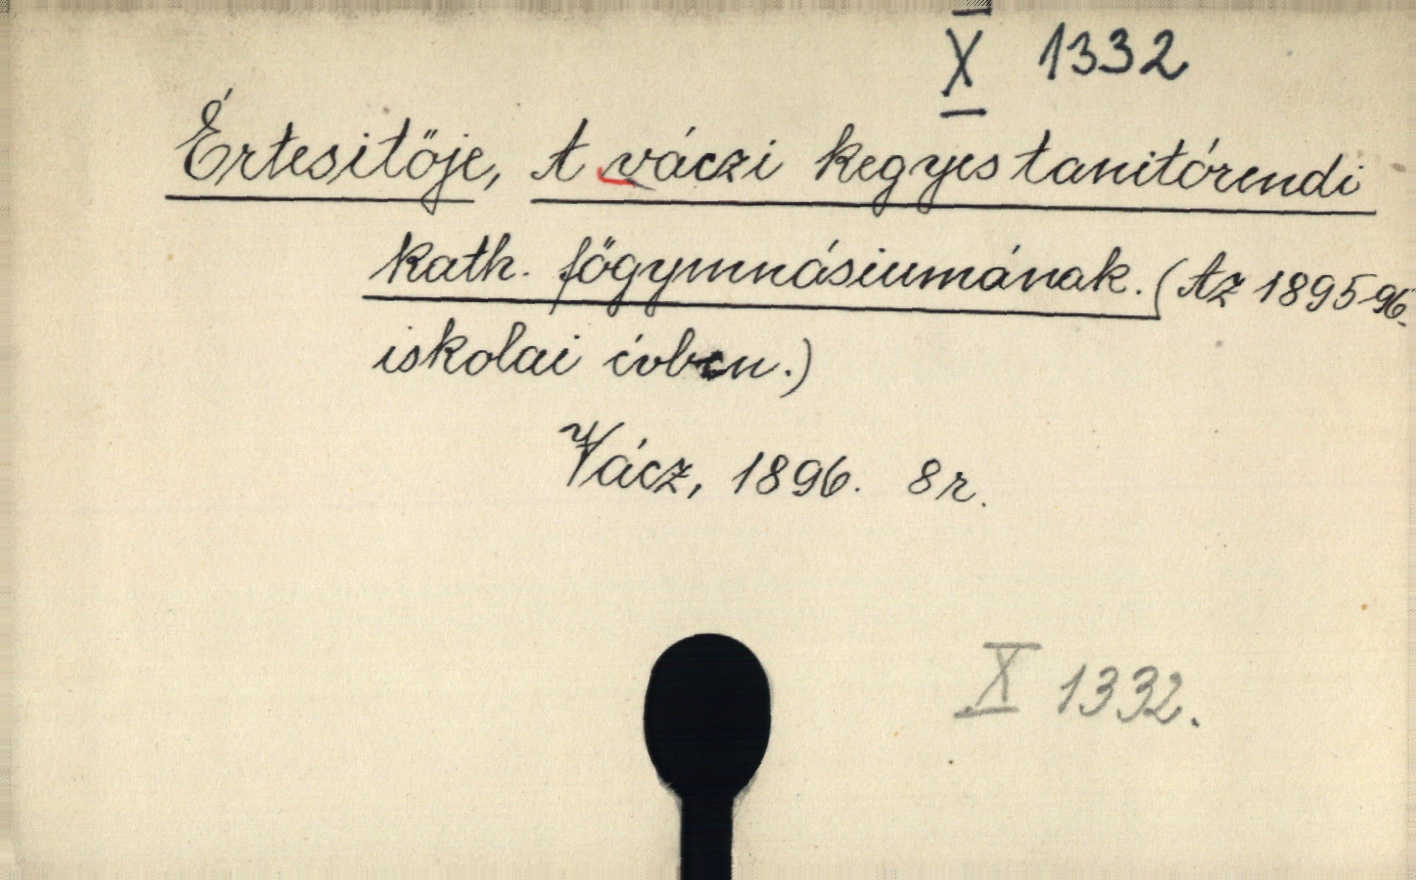 X 1332
Értesitője, A váczi kegyes tanitórendi
kath. főgymnásiumának. (Az 1895-96.
iskolai évben.)
Vácz, 1896. 8r.
X 1332.